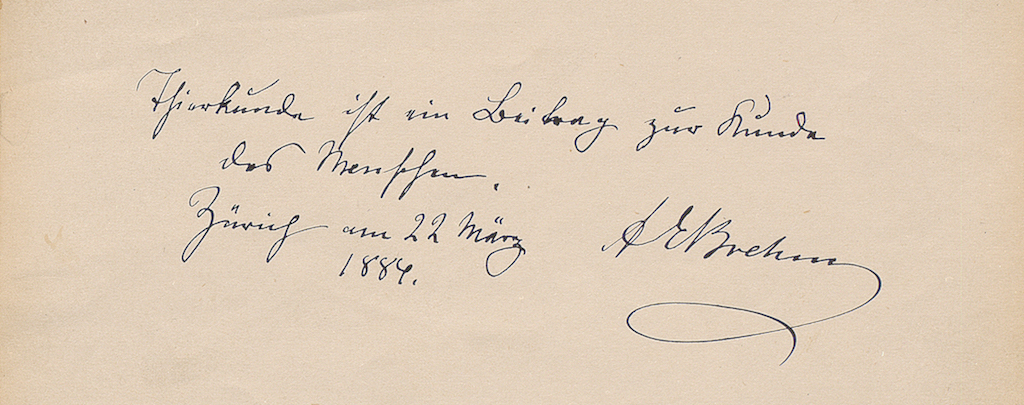 Thierkunde ist ein Beitrag zur Kunde
des Menschen.
Zürich am 22 März
1884.
A E Brehm